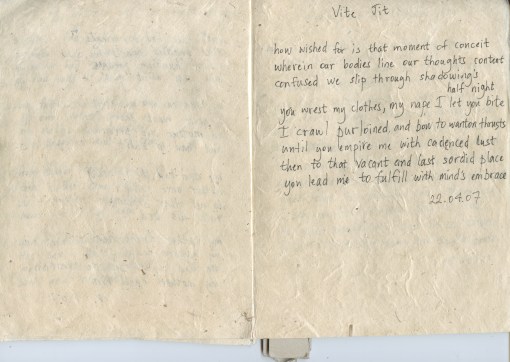 Vite Jit
how wished for is that moment of conceit
wherein our bodies line our thoughts content
confused we slip through shadowing's
half-night
you wrest my clothes, my nape I let you bite
I crawl purloined and bow to wanton thrusts
until you empire me with cadenced lust
then to that vacant and last sordid place
you lead me to fulfill with mind's embrace
22.04.07